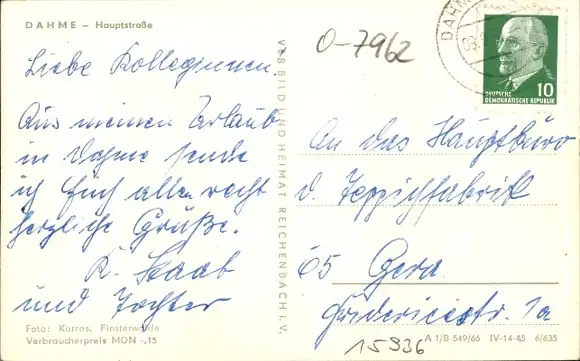 DAHME – Hauptstraße
0-7962
DAHME
DEUTSCHE
DEMOKRATISCHE REPUBLIK
10
Liebe Kolleginnen,
Aus meinen Urlaub
in Dahme sende
ich Euch allen recht
herzliche Grüße.
K. Staab
und Tochter
VEB BILD UND HEIMAT REICHENBACH i. V.
An das Hauptbüro
d. Teppichfabrik
65 Gera
Friedericistr. 1a
Foto: Karras, Finsterwalde
Verbraucherpreis MDN -,15
A 1/B 549/66 IV-14-45 6/635
15936